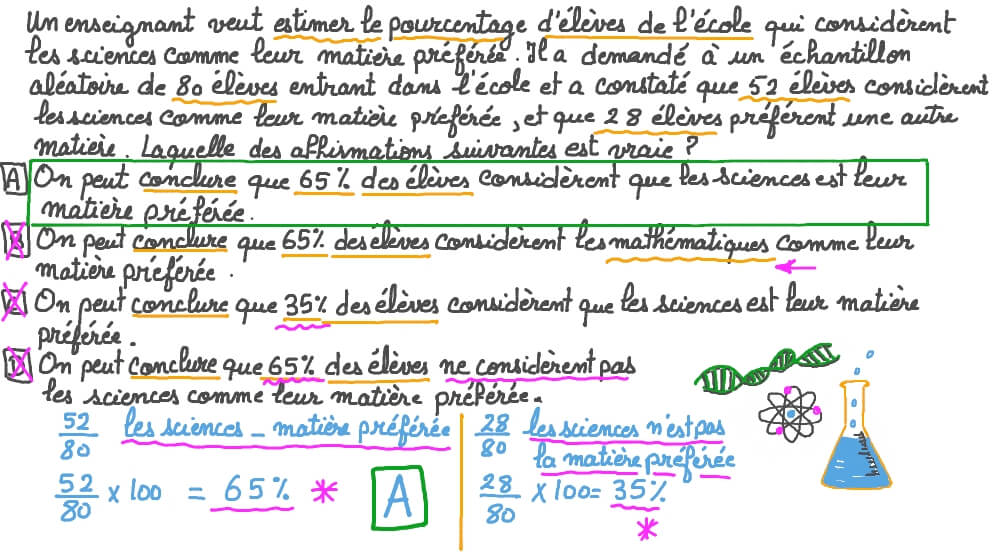 Un enseignant veut estimer le pourcentage d'élèves de l'école qui considèrent
les sciences comme leur matière préférée. Il a demandé à un échantillon
aléatoire de 80 élèves entrant dans l'école et a constaté que 52 élèves considèrent
les sciences comme leur matière préférée, et que 28 élèves préfèrent une autre
matière. Laquelle des affirmations suivantes est vraie ?
A On peut conclure que 65% des élèves considèrent que les sciences est leur
matière préférée.
B On peut conclure que 65% des élèves considèrent les mathématiques comme leur
matière préférée.
C On peut conclure que 35% des élèves considèrent que les sciences est leur matière
préférée.
D On peut conclure que 65% des élèves ne considèrent pas
les sciences comme leur matière préférée.
52/80 les sciences - matière préférée
52/80 x 100 = 65% *
A
28/80 les sciences n'est pas
la matière préférée
28/80 x 100 = 35%
*